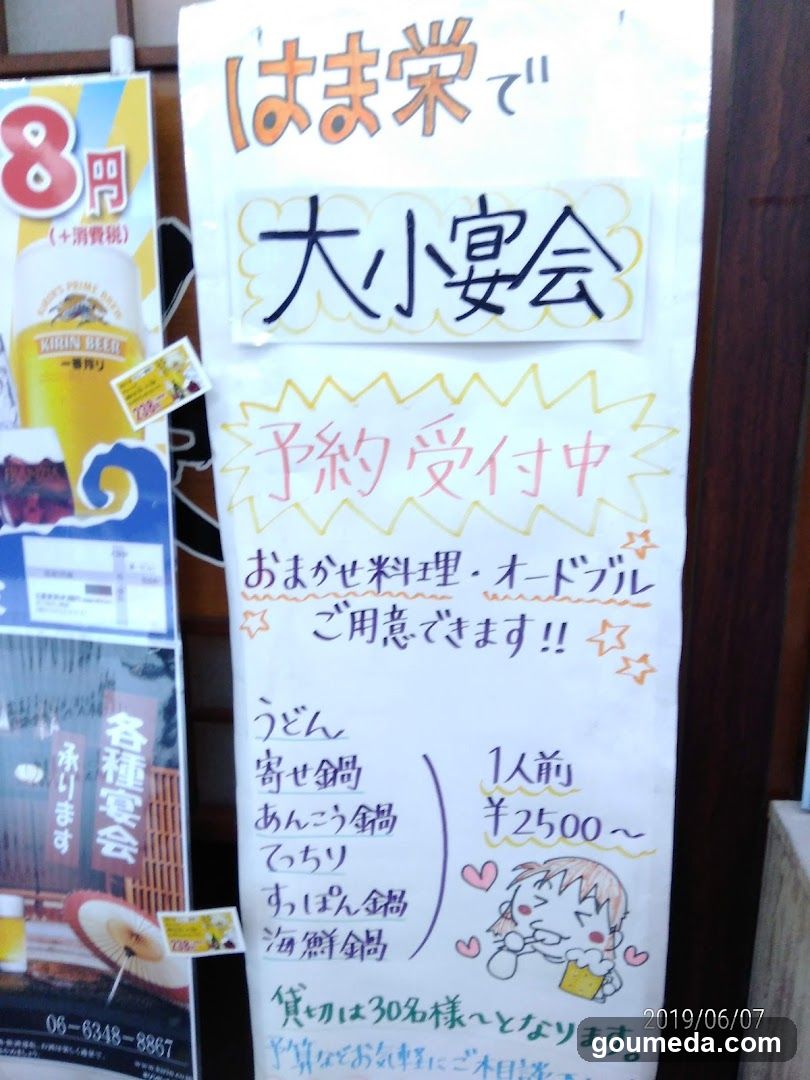 はま栄で
大小宴会
予約受付中
おまかせ料理・オードブル
ご用意できます!!
うどん
寄せ鍋
あんこう鍋
てっちり
すっぽん鍋
海鮮鍋
1人前
¥2500〜
貸切は30名様〜となります。
予算などお気軽にご相談
8円
(+消費税)
KIRIN'S PRIME BREW
KIRIN BEER
一番搾り
238
各種宴会
承ります
238
06-6348-8867
2019/06/07
goumeda.com